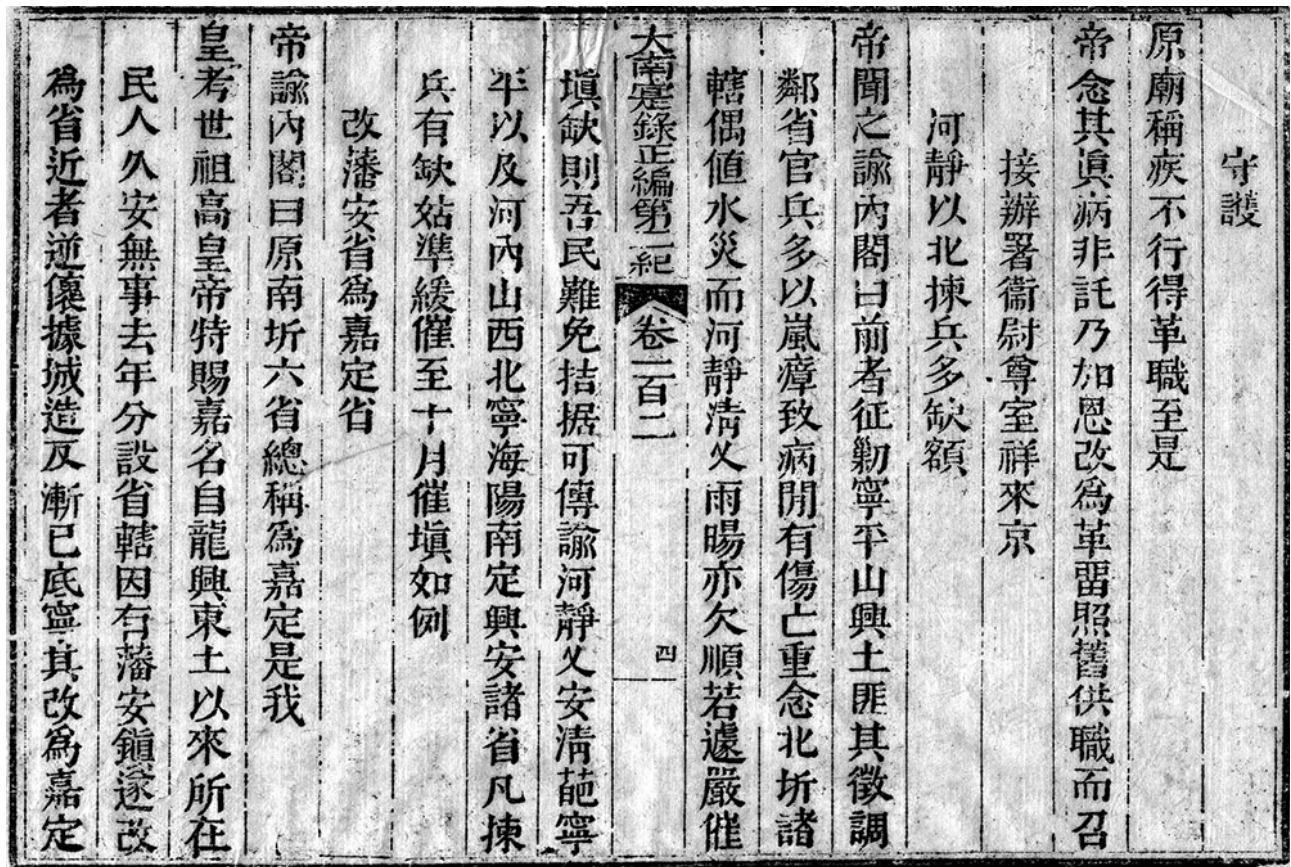 守護
原廟稱疾不行得革職至是
帝念其眞病非託乃加恩改爲革畱照舊供職而召
接辦署衞尉尊室祥來京
河靜以北揀兵多缺額
帝聞之諭內閣曰前者征勦寧平山興土匪其徵調
鄰省官兵多以嵐瘴致病閒有傷亡重念北圻諸
轄偶値水災而河靜淸乂雨暘亦欠順若遽嚴催
大南寔錄正編第二紀 卷一百二 四
塡缺則吾民難免拮据可傳諭河靜乂安淸葩寧
平以及河內山西北寧海陽南定興安諸省凡揀
兵有缺姑準緩催至十月催塡如例
改藩安省爲嘉定省
帝諭內閣曰原南圻六省總稱爲嘉定是我
皇考世祖高皇帝特賜嘉名自龍興東土以來所在
民人久安無事去年分設省轄因有藩安鎭遂改
爲省近者逆儴據城造反漸已底寧其改爲嘉定